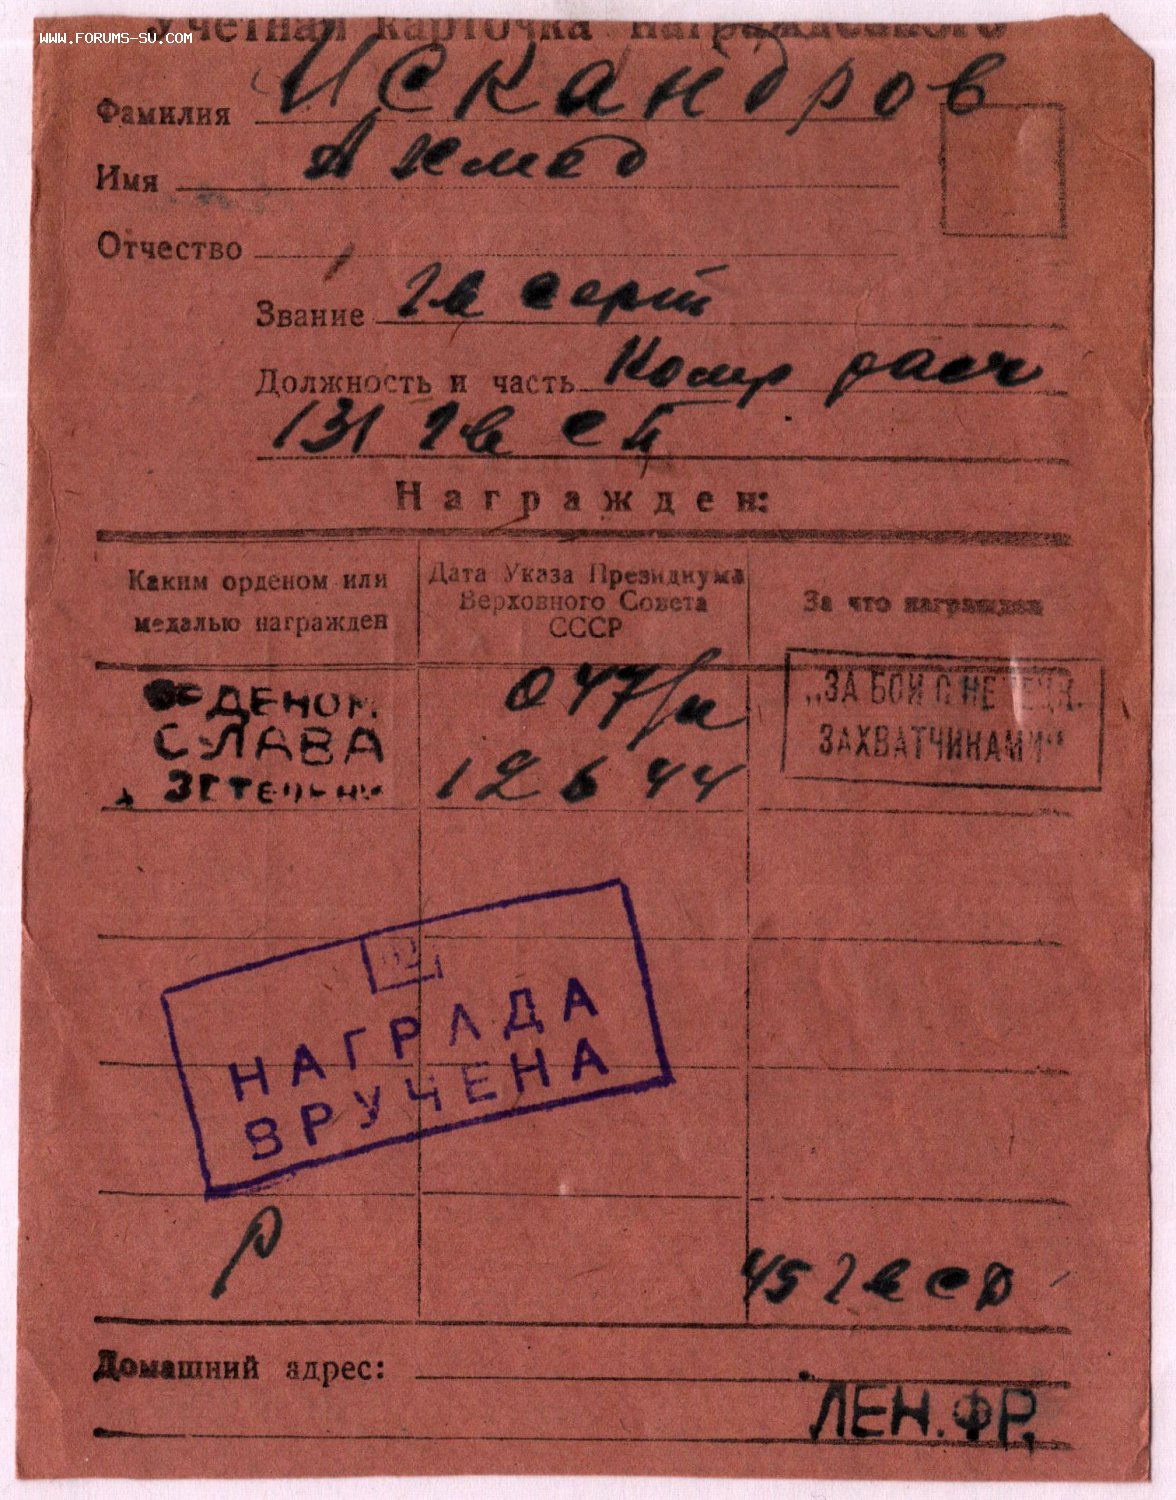 WWW.FORUMS-SU.COM
Учетная карточка награжденного
Фамилия Искандров
Имя Ахмед
Отчество
Звание гв серт
Должность и часть Комр расч
131 гв сп
Награжден:
Каким орденом или медалью награжден
Дата Указа Президиума Верховного Совета СССР
За что награжден
ОРДЕНОМ
СЛАВА
3й СТЕПЕНИ
047/н
12 6 44
„ЗА БОИ С НЕМЕЦК.
ЗАХВАТЧИКАМИ"
НАГРАДА
ВРУЧЕНА
Р
45 гв сд
Домашний адрес:
ЛЕН. ФР.